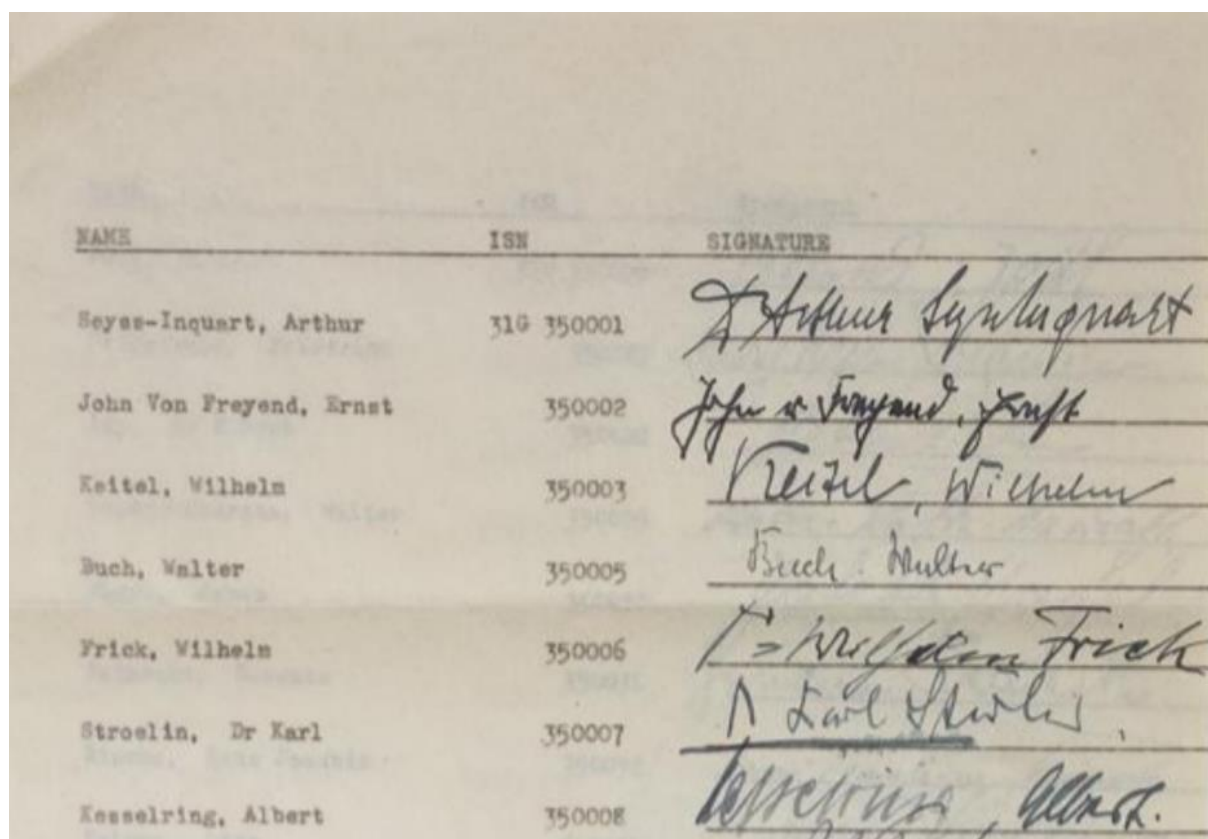 NAME ISN SIGNATURE
Seyss-Inquart, Arthur 31G 350001 Dr Arthur Seyss-Inquart
John Von Freyend, Ernst 350002 John v Freyend, Ernst
Keitel, Wilhelm 350003 Keitel, Wilhelm
Buch, Walter 350005 Buch. Walter
Frick, Wilhelm 350006 Wilhelm Frick
Stroelin, Dr Karl 350007 Karl
Kesselring, Albert 350008 Kesselring, Albert.